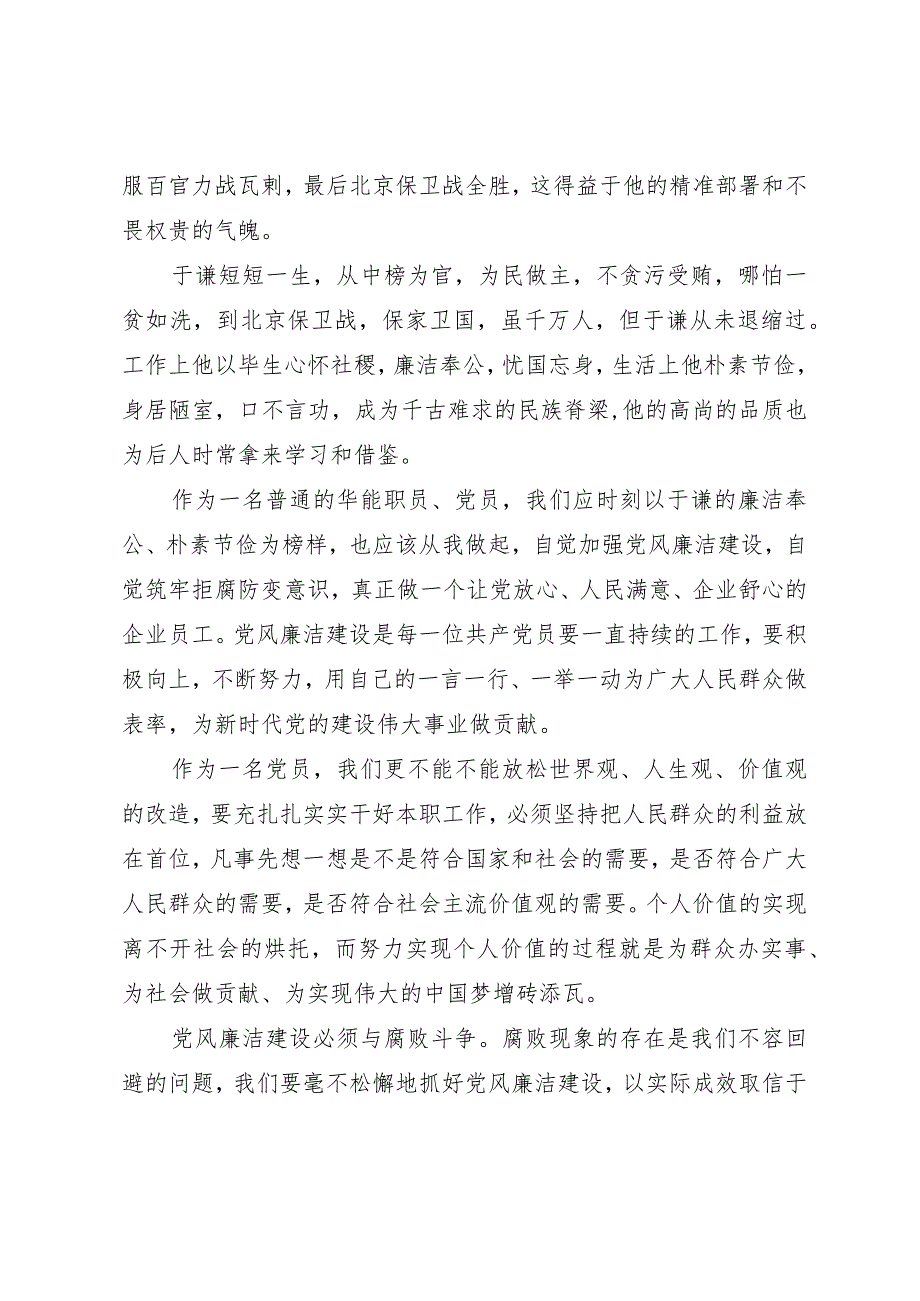 服百官力战瓦剌，最后北京保卫战全胜，这得益于他的精准部署和不
畏权贵的气魄。
于谦短短一生，从中榜为官，为民做主，不贪污受贿，哪怕一
贫如洗，到北京保卫战，保家卫国，虽千万人，但于谦从未退缩过。
工作上他以毕生心怀社稷，廉洁奉公，忧国忘身，生活上他朴素节俭，
身居陋室，口不言功，成为千古难求的民族脊梁,他的高尚的品质也
为后人时常拿来学习和借鉴。
作为一名普通的华能职员、党员，我们应时刻以于谦的廉洁奉
公、朴素节俭为榜样，也应该从我做起，自觉加强党风廉洁建设，自
觉筑牢拒腐防变意识，真正做一个让党放心、人民满意、企业舒心的
企业员工。党风廉洁建设是每一位共产党员要一直持续的工作，要积
极向上，不断努力，用自己的一言一行、一举一动为广大人民群众做
表率，为新时代党的建设伟大事业做贡献。
作为一名党员，我们更不能不能放松世界观、人生观、价值观
的改造，要充扎扎实实干好本职工作，必须坚持把人民群众的利益放
在首位，凡事先想一想是不是符合国家和社会的需要，是否符合广大
人民群众的需要，是否符合社会主流价值观的需要。个人价值的实现
离不开社会的烘托，而努力实现个人价值的过程就是为群众办实事、
为社会做贡献、为实现伟大的中国梦增砖添瓦。
党风廉洁建设必须与腐败斗争。腐败现象的存在是我们不容回
避的问题，我们要毫不松懈地抓好党风廉洁建设，以实际成效取信于